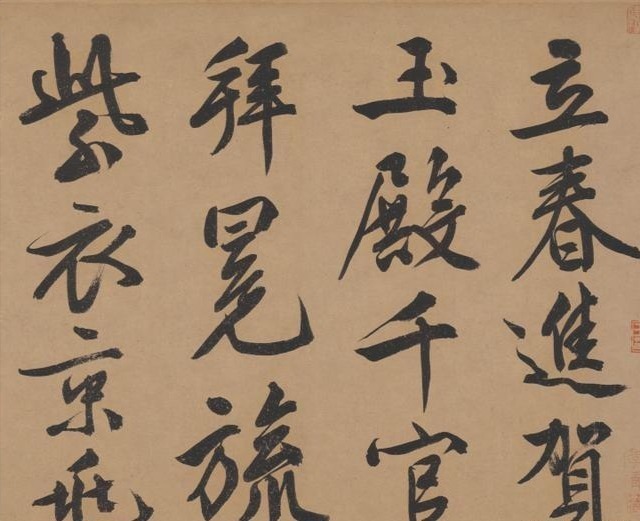 立春進賀
玉殿千官
拜冕旒
紫衣京